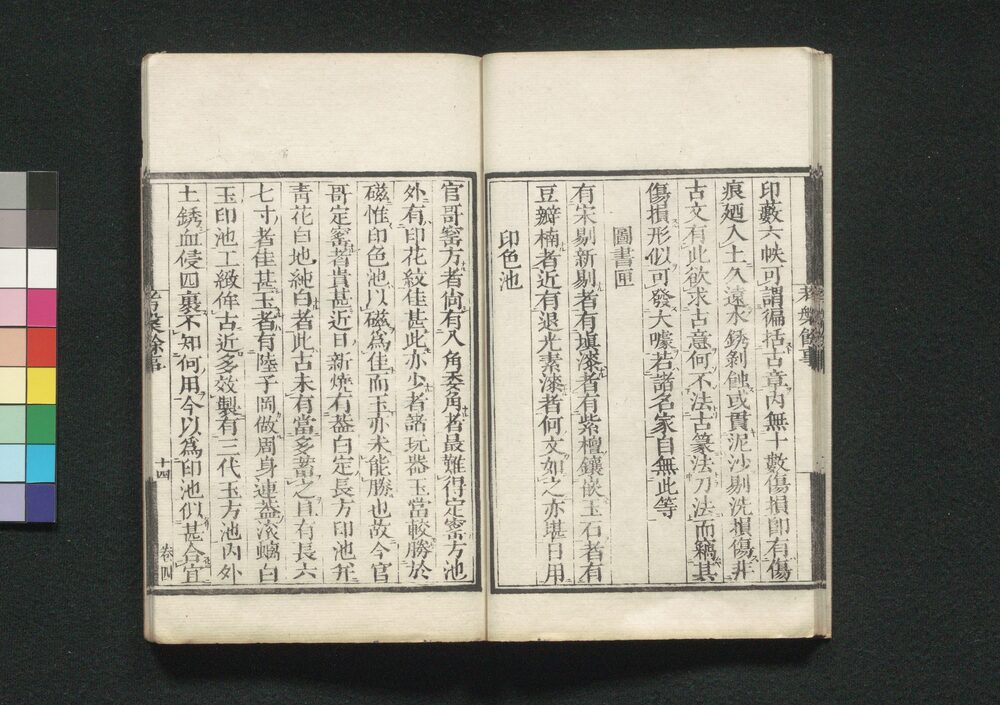 印藪六帙可謂徧括古章內無十數傷損卽有傷
痕廼入土久遠水銹剝蝕或貫泥沙剔洗損傷非
古文有此欲求古意何不法古篆法刀法而竊其
傷損形似可發大噱若諸名家自無此等
圖書匣
有宋剔新剔者有塡漆者有紫檀鑲嵌玉石者有
豆瓣楠者近有退光素漆者何文如之亦堪日用
印色池
官哥窰方者尙有八角委角者最難得定窰方池
外有印花紋佳甚此亦少者諸玩器玉當較勝於
磁惟印色池以磁爲佳而玉亦未能勝也故今官
哥定窰者貴甚近日新燒有葢白定長方印池幷
靑花白地純白者此古未有當多蓄之且有長六
七寸者佳甚玉者有陸子岡做周身連葢滚螭白
玉印池工緻侔古近多效製有三代玉方池內外
土銹血侵四裹不知何用今以爲印池似甚合宜
考槃餘事
十四
卷四